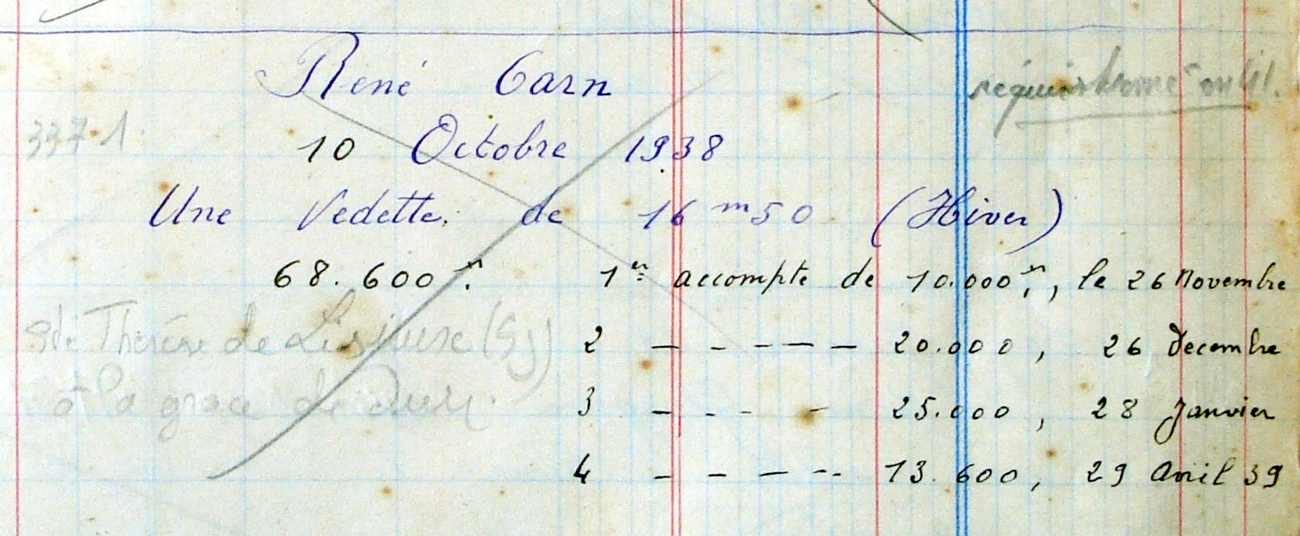 René Carn
10 Octobre 1938
Une Vedette de 16 m 50 (Hiver)
68.600 frs. 1er accompte de 10.000 frs., le 26 Novembre
2 - - - - - 20.000, 26 Decembre
3 - - - - 25.000, 28 Janvier
4 - - - - - 13.600, 29 Avril 39
337.1
Ste Thérèse de Lisieux (Gj)
à la grace de
en 41.